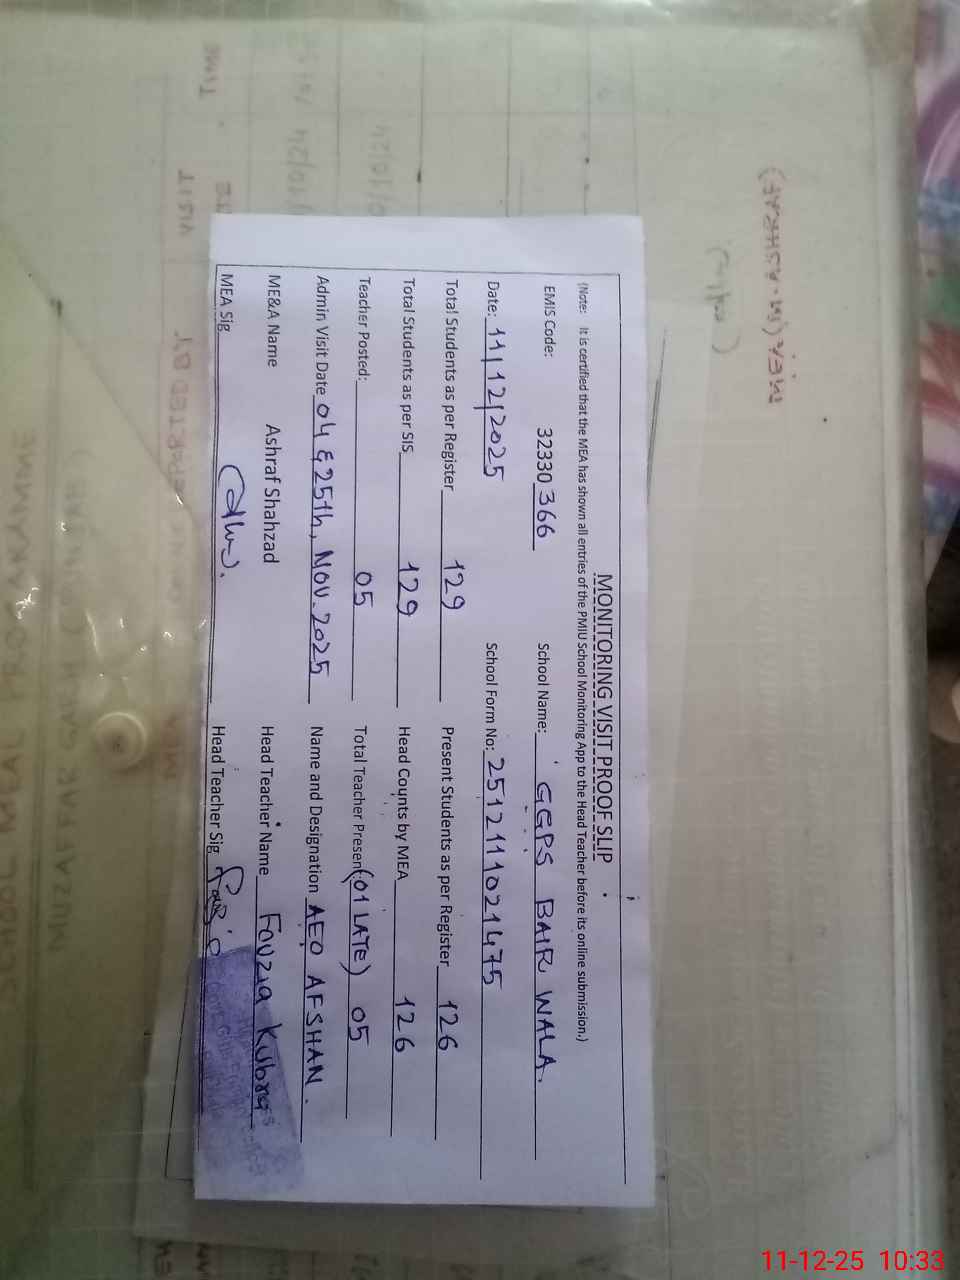 MONITORING VISIT PROOF SLIP
(Note: It is certified that the MEA has shown all entries of the PMIU School Monitoring App to the Head Teacher before its online submission.)
EMIS Code: 32330 366 School Name: GGPS BAIR WALA.
Date: 11/12/2025 School Form No: 2512111021475
Total Students as per Register 129 Present Students as per Register 126
Total Students as per SIS 129 Head Counts by MEA 126
Teacher Posted: 05 Total Teacher Present (01 LATE) 05
Admin Visit Date 04 & 25th, NOV. 2025 Name and Designation AEO AFSHAN.
ME&A Name Ashraf Shahzad Head Teacher Name Fouzia Kubra
MEA Sig Head Teacher Sig
MEA. (M. ASHRAF)
TIME
VISIT
11-12-25 10:33